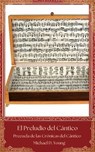 El Preludio del Cántico
Precuela de las Crónicas del Cántico
Michael D. Young